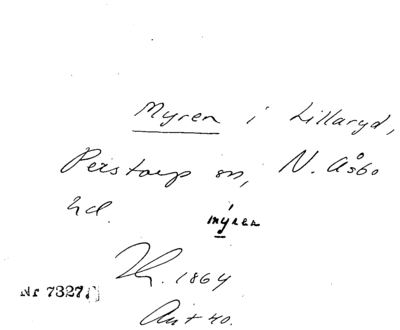 Myren i Lillaryd,
Perstorp sn, N. Åsbo
hd. myren
1864
Nr 7327
Ant 40.